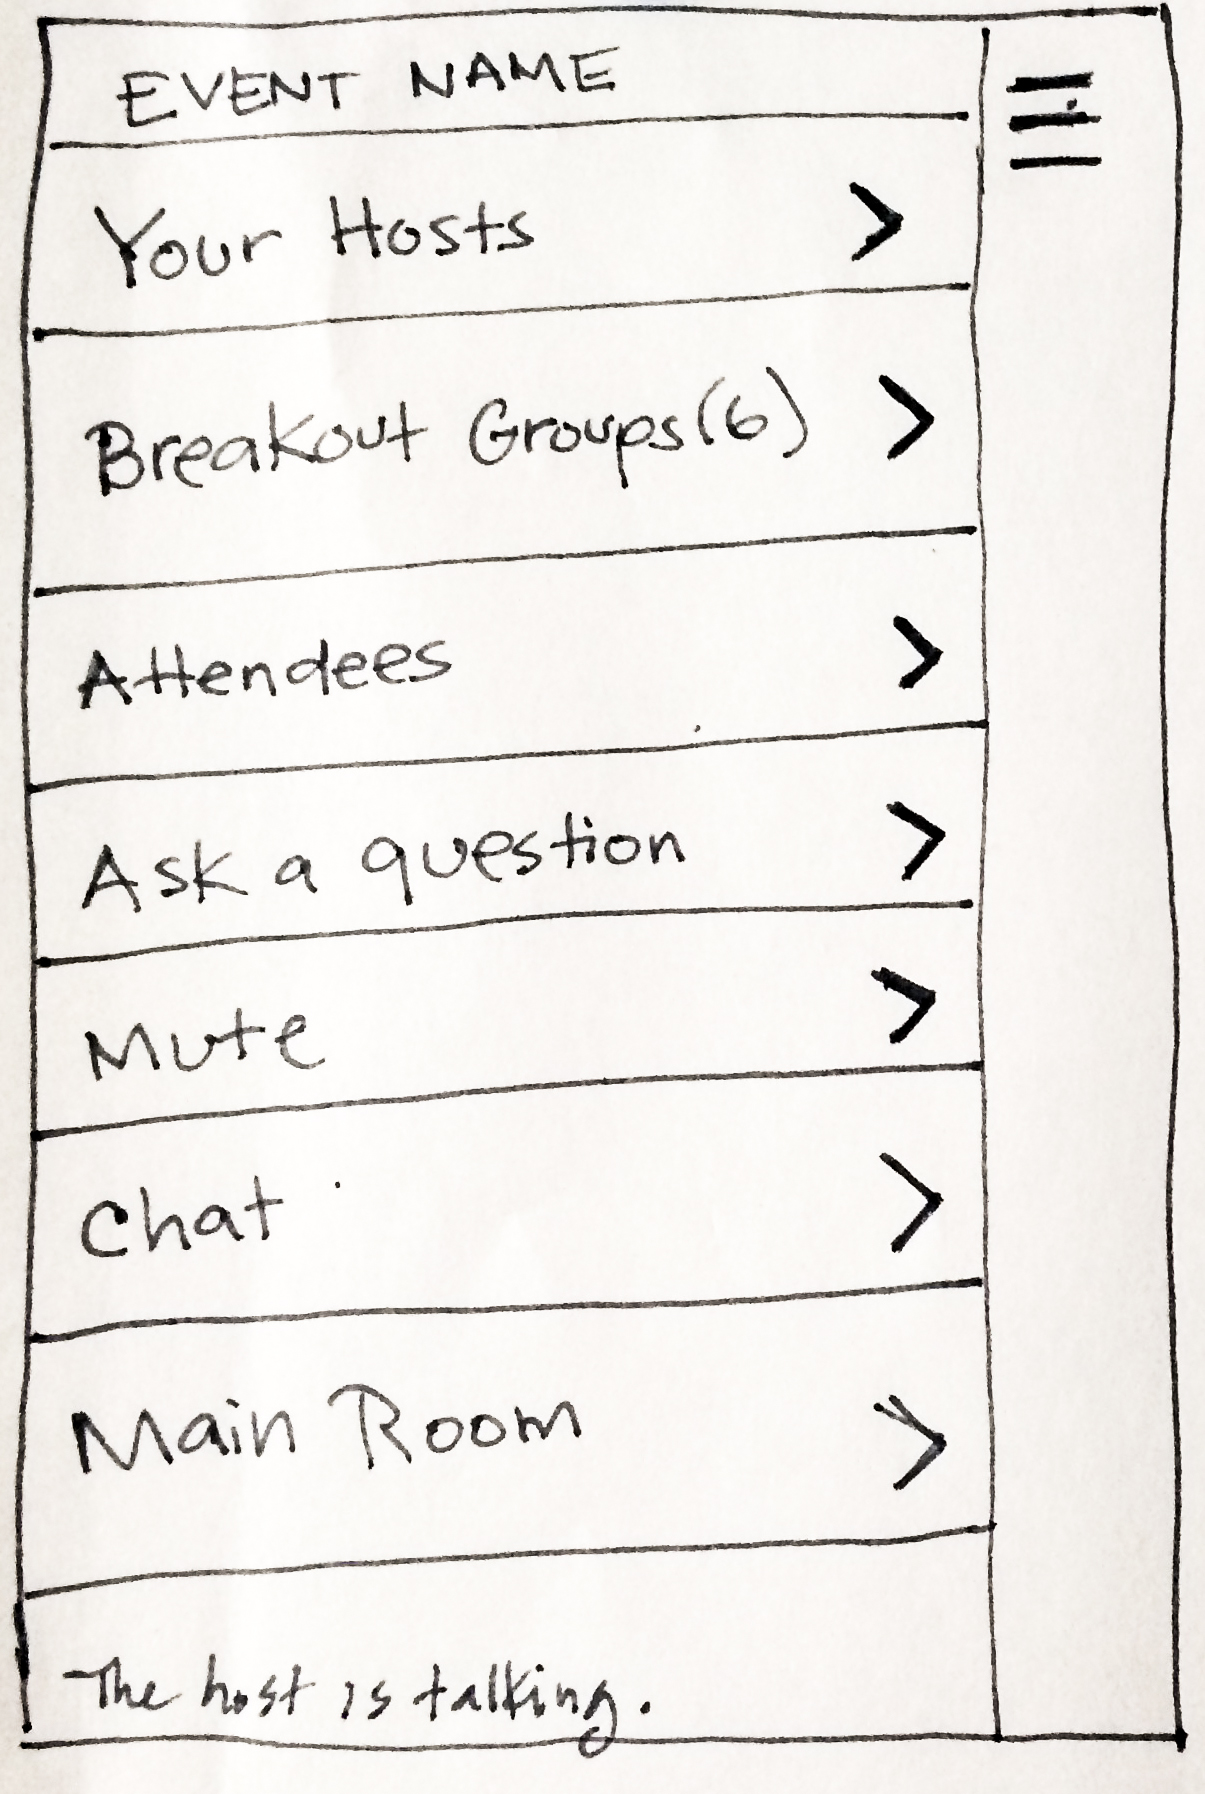 EVENT NAME
Your Hosts
Breakout Groups(6)
Attendees
Ask a question
Mute
Chat
Main Room
The host is talking.